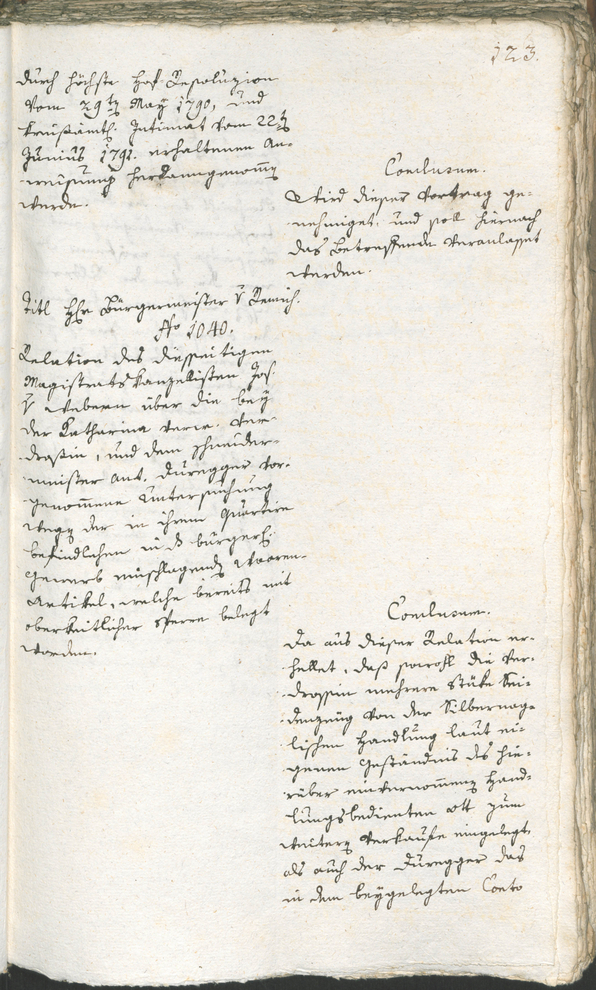 123.
durch höchste Hof-Resoluzion
vom 29ten May 1790, und
kreisämtl. Intimat vom 22ten
Junius 1791. erhaltenen An-
weisung herkanngenommen
werde.
Conclusum.
Wird dieser Vortrag ge-
nehmiget, und soll hiernach
das Betreffende veranlasset
werden.
Titl Hhr Bürgermeister v Remich.
No 1040.
Relation des diesseitigen
Magistratskanzellisten Jos.
v Webern über die bey
der Katharina verw. Ver-
drossin, und dem Schneider-
meister Ant. Duregger vor-
genommene Untersuchung
wegen der in ihrem Quartire
befindlichen in d bürgerl.
Gewerb einschlagenden Waaren-
Artikel, welche bereits mit
oberkeitlicher Sperre belegt
worden.
Conclusum.
Da aus dieser Relation er-
hellet, daß sowohl die Ver-
drossin mehrere Stüke Sei-
denzeug von der Silbernagl-
lischen Handlung laut ei-
genen Geständnis des hie-
rüber einvernommenen Hand-
lungsbedienten Ott zum
weitern Verkaufe eingelegt,
als auch der Duregger das
in dem beygelegten Conto